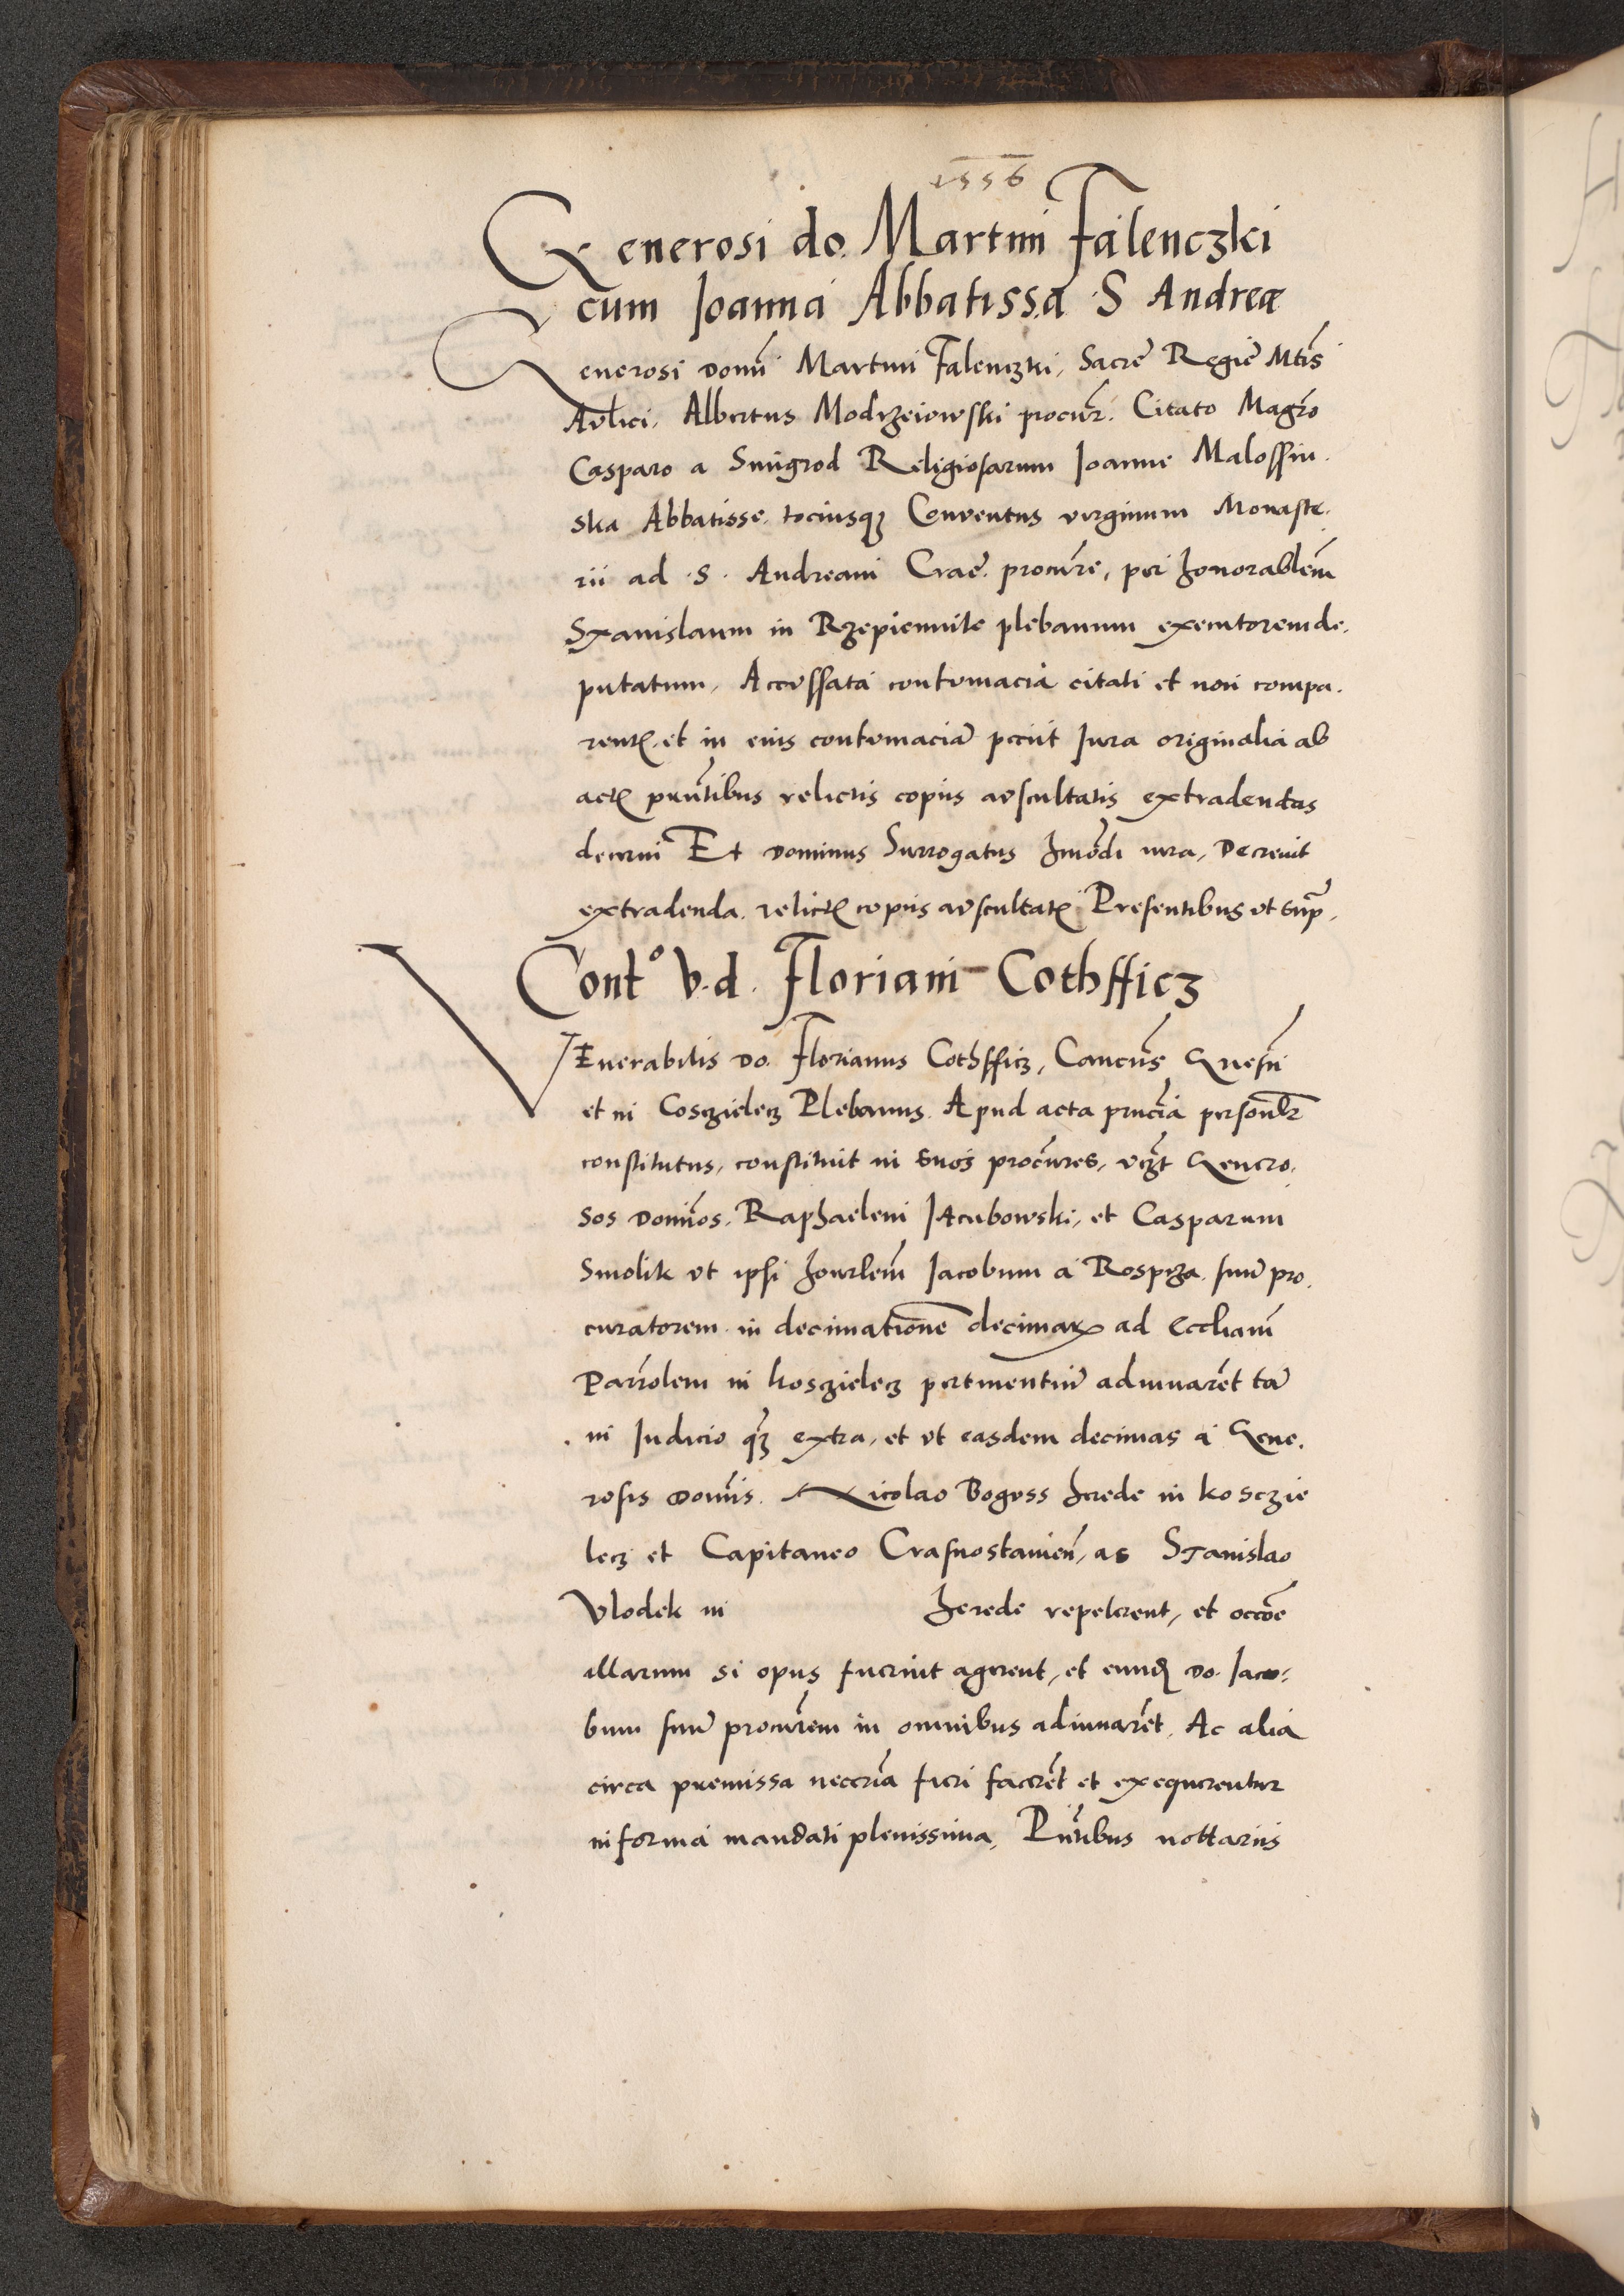 1556
Generosi do. Martini Falenczki
cum Joanna Abbatissa S Andreæ
Generosi domĩ Martini Falenczki, Sacrẽ Regiẽ Mtĩs
Aulici, Albertus Modrzeiowski procur̃. Citato Magr̃o
Casparo a Smigrod Religiosarum Joanne Malossin.
ska Abbatisse, tociusq3 Conventus virginum Monaste.
rii ad .S. Andream Cracẽ. procur̃e, per honorabilem̃
Stanislaum in Rzepiennik plebanum executorem de.
putatum, Accussata contumacia citati et non compa.
rentꝭ. et in eius contumaciã peciit Jura originalia ab
actꝭ pñtibus relictis copiis auscultatis extradendas
decerni Et dominus Surrogatus hmõdi iura, Decrevit
extradenda. relictꝭ copiis auscultatꝭ Presentibus ut supr̃.
Contº v.d. Floriani Cothfficz
VEnerabilis do. Florianus Cothfficz, Canc̃us Gnesñ
et in Cosczielecz Plebanus. Apud acta pñcia personlr̃
constitutus, constituit in suos procur̃es, vcz̃t Genero.
sos Domĩos. Raphaelem Jacubowski, et Casparum
Smolik ut ipsi honrlem̃ Jacobum a Rosprza. suũ pro.
curatorem in decimatione decimaꝝ ad Eccliam̃
Parr̃olem in Kosczielecz pertinentiũ adiuvarẽt tã
in Judicio q̃3 extra, et ut easdem decimas a Gene.
rosis Domĩs. Nicolao Boguss herede in Kosczie
lecz et Capitaneo Crasnostavien̄, ac Stanislao
Vlodek in herede repeterent, et occõe
illarum si opus fuerint agerent, et eundꝭ do. Jaco:
bum suũ procur̃em in omnibus adiuvarẽt. Ac alia
circa premissa neccr̃ia fieri facerẽt et exequerentur
in forma mandati plenissima, Pñtibus nottariis